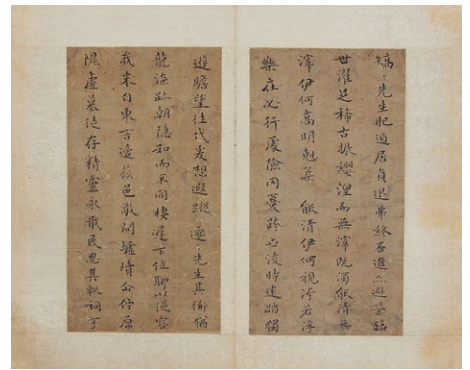 矯〻先生肥遁居貞退弗終否進亦避榮臨
世濯足稀古振纓涅而無滓既濁能清無
滓伊何高明剋柔 能清伊何視汙若浮
樂在必行處險罔憂跨世凌時遠蹈獨
遊瞻望往代爰想遐蹤邈〻先生其道猶
龍染跡朝隱和而不同棲遲下位聊以從容
我来自東言適茲邑敬問墟墳企佇原
隰虛墓徒存精靈永戢民思其軌祠宇